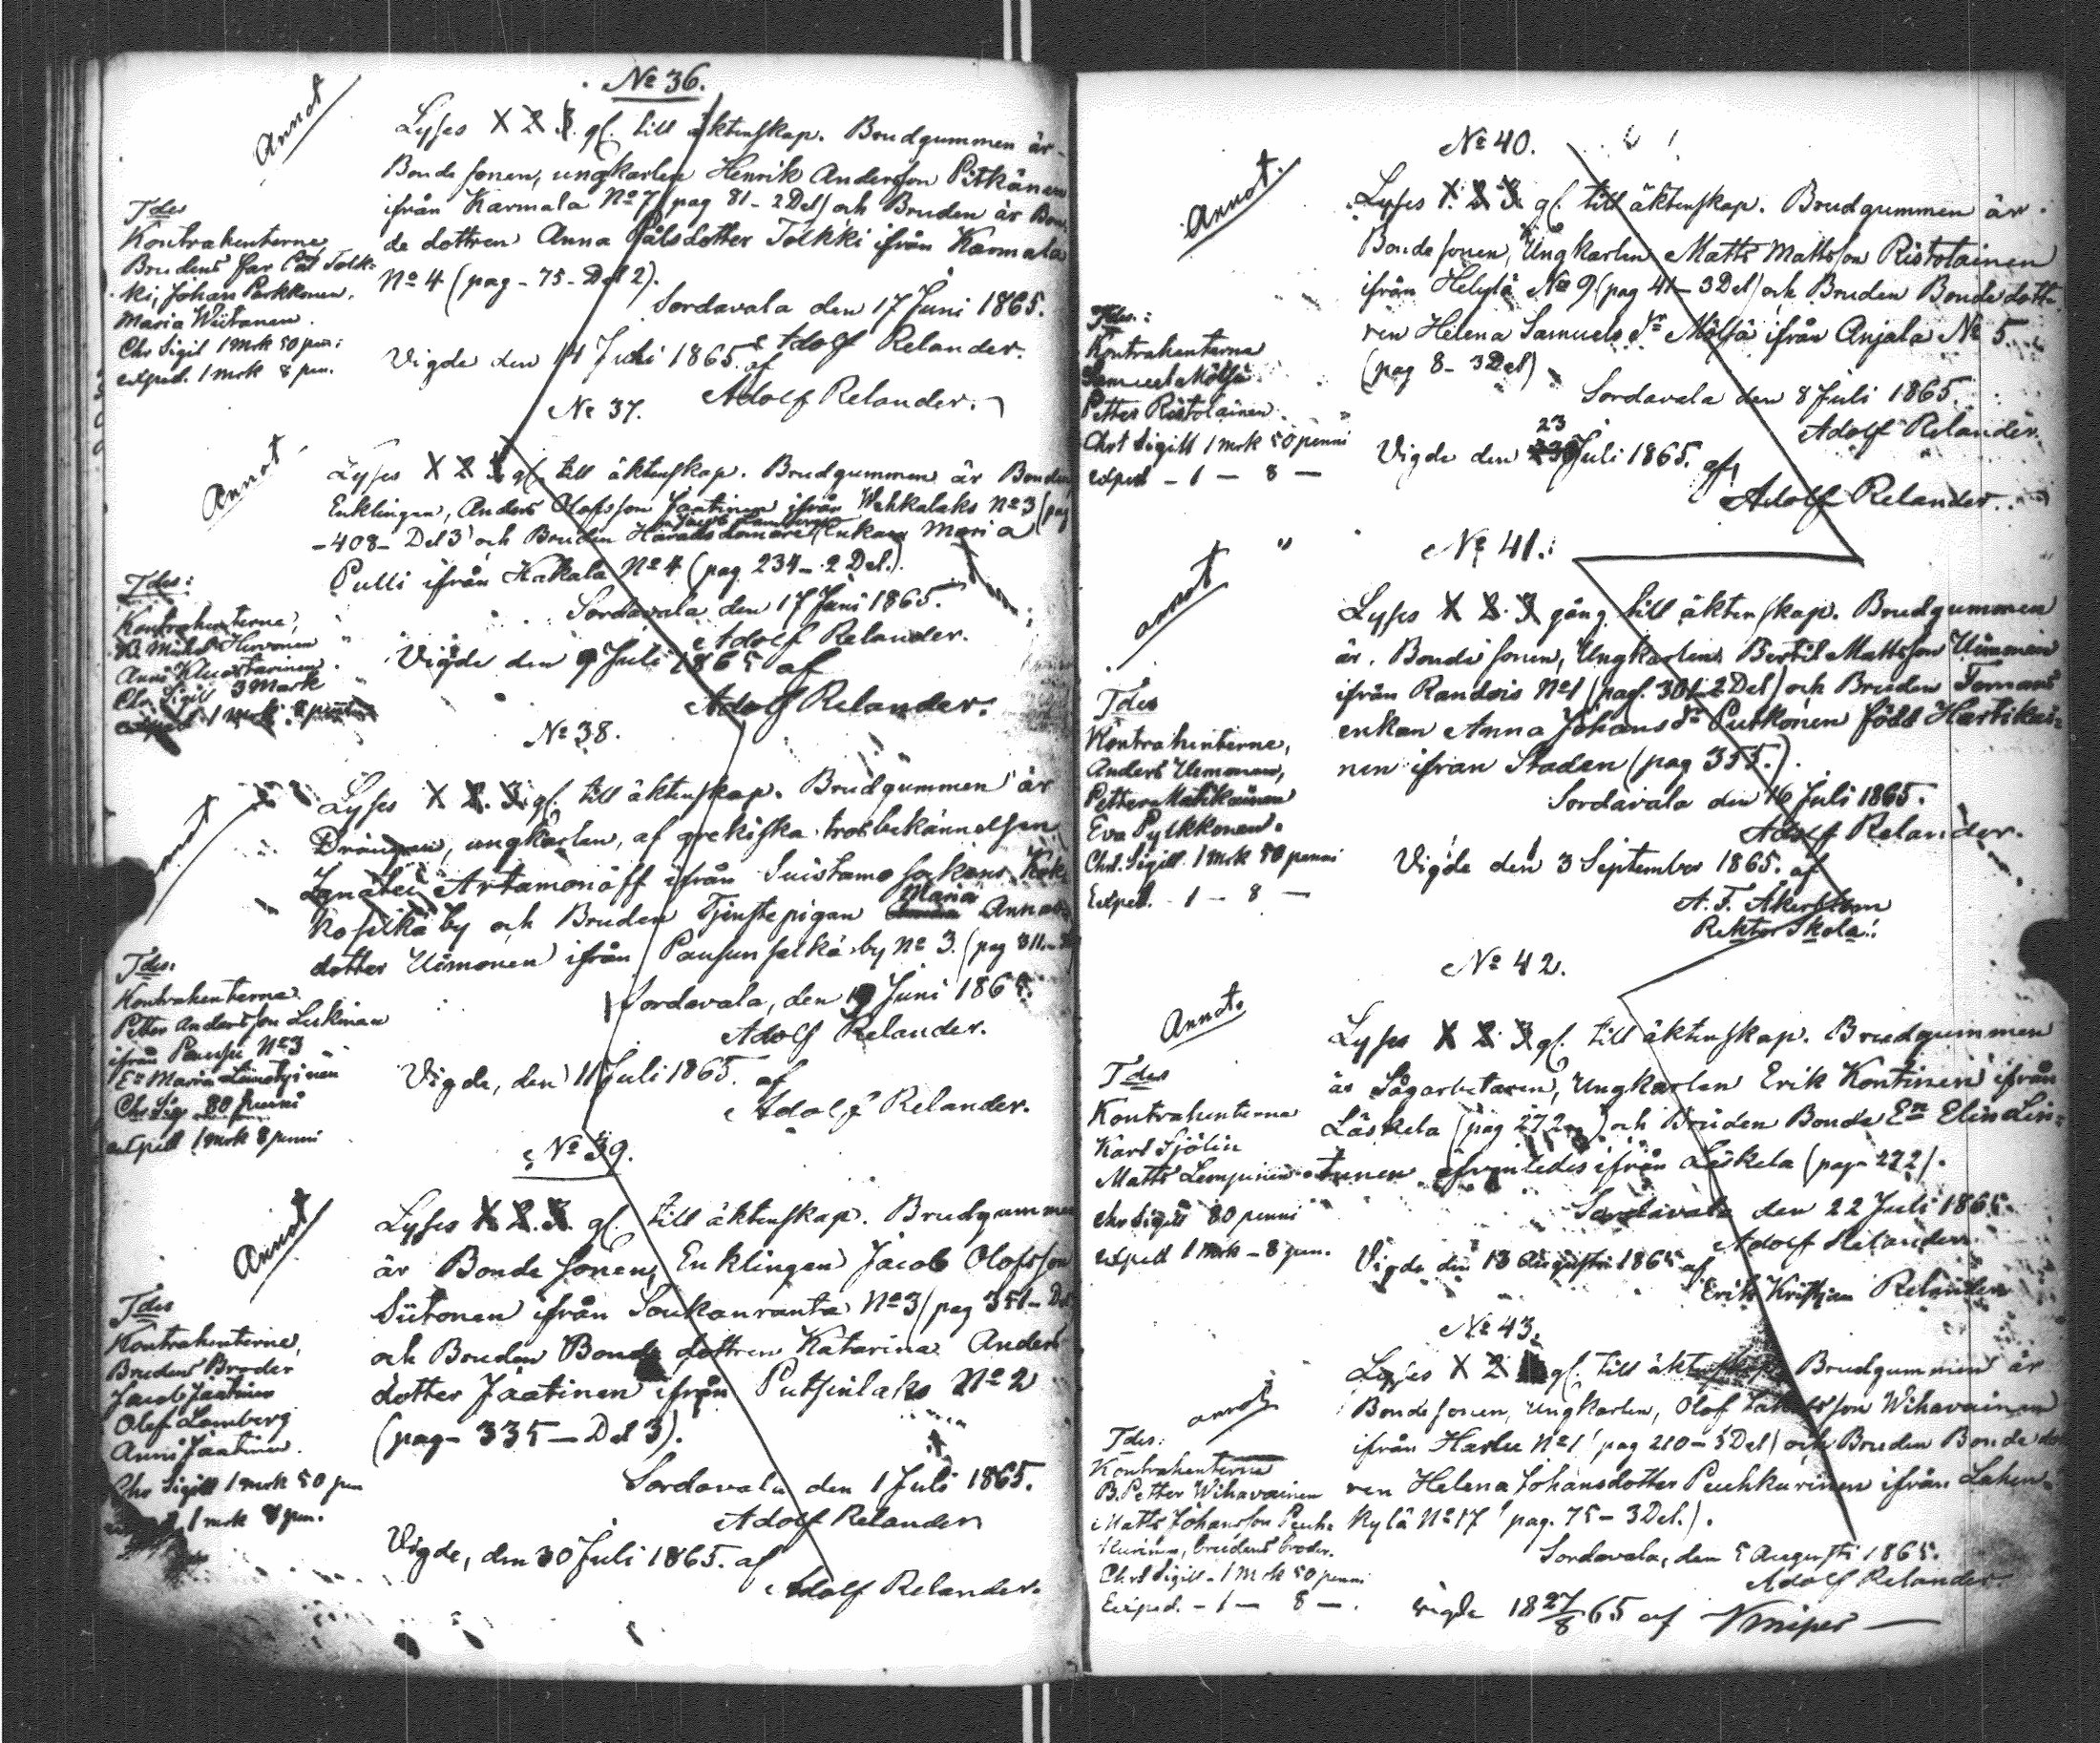 No 36.
Annot
Lyses 1 2 3. gl. till äktenskap. Brudgummen är
Bonde sonen, ungkarlen Henrik Andersson Pitkänen
ifrån Karmala No 7 (pag 81 - 2 Del) och Bruden är Bon-
de dottren Anna Pålsdotter Tolkki ifrån Karmala
No 4 (pag - 75 - Del 2).
Sordavala den 17 Juni 1865.
Adolf Relander.
Vigde den 14 Juli 1865 af
Adolf Relander.
Tdes
Kontrahenterne
Brudens far Pål Tolk-
ki, Johan Parkkonen,
Maria Wiitanen.
Chr Sigil 1 mrk 50 pen:
exped. 1 mrk 8 pen.
No 37.
Annot
Lyses 1 2 3 gl. till äktenskap. Brudgummen är Bonden
Enklingen, Anders Olofsson Jaatinen ifrån Wehkalaks No 3 (pag
- 408 - Del 3 och Bruden Härads domare Enkan Maria
Pulli ifrån Kakala No 4 (pag 234 - 2 Del.)
Sordavala den 17 Juni 1865.
Adolf Relander.
Vigde den 9 Juli 1865 af
Adolf Relander.
Tdes:
Kontrahenterne,
Hirvonen
Chr. Sigill 3 Mark
exped. 1 mrk 8 penni
No 38.
annot
Lyses 1 2. 3. gl. till äktenskap. Brudgummen är
Drängen, ungkarlen, af grekiska trosbekännelsen
Ignatei Artamonoff ifrån Suistamo sockens Kok-
kosilkä by och Bruden Tjenstepigan Maria Anders-
dotter Uimonen ifrån Pausun selkä by No 3. (pag 311
Sordavala, den 19 Juni 1865.
Adolf Relander.
Vigde, den 11 Juli 1865. af
Adolf Relander.
Tdes:
Kontrahenterne.
Petter Andersson Leskinen
ifrån Pausu No 3
En Maria
Chr Sig 80 penni
exped 1 mrk 8 penni
No 39.
Annot
Lyses 1. 2. 3. gl. till äktenskap. Brudgummen
är Bonde sonen, Enklingen Jacob Olofsson
Siitonen ifrån Soukanranta No 3 (pag 351 - Del
och Bruden Bonde dottren Katarina Anders
dotter Jäatinen ifrån Putsinlaks No 2
(pag - 335 - Del 3).
Sordavala den 1 Juli 1865.
Adolf Relander
Vigde, den 30 Juli 1865. af
Adolf Relander.
Tdes
Kontrahenterne,
Brudens Broder
Jacob Jäatinen
Olof Lamberg
Anni Jäatinen.
Chr Sigill 1 mrk 50 pen
1 mrk 8 pen.
No 40.
Annot.
Lyses 1. 2. 3. gl. till äktenskap. Brudgummen är
Bonde sonen, Ungkarlen Matts Mattsson Ristolainen
ifrån Helylä No 9 (pag 41 - 3 Del) och Bruden Bonde dott-
ren Helena Samuels dr Mölsä ifrån Anjala No 5
(pag 8 - 3 Del)
Sordavala den 8 Juli 1865.
Adolf Relander.
Vigde den 23 Juli 1865. af
Adolf Relander.
Tdes:
Kontrahenterne
Samuel Mölsä
Petter Ristolainen
Chrt Sigill 1 mrk 50 penni
exped - 1 - 8 -
No 41.
annot
Lyses 1 2. 3 gång till äktenskap. Brudgummen
är. Bonde sonen, Ungkarlen Bertil Mattsson Uimonen
ifrån Randois No 1 (pag. 301 - 2 Del) och Bruden
enkan Anna Johans dr Putkonen född Hartikai-
nen ifrån Staden (pag 355.).
Sordavala den 16 Juli 1865.
Adolf Relander.
Vigde den 3 September 1865. af
A. F. Åkerblom
Rektor Skola.
Tdes
Kontrahenterne,
Anders Uimonen,
Petter
Eva Pylkkonen.
Chrt. Sigill. 1 Mrk 50 penni
Exped. - 1 - 8 -
No 42.
Annot.
Lyses 1 2. 3 gl. till äktenskap. Brudgummen
är Sågarbetaren, Ungkarlen Erik Kontinen ifrån
Läskelä (pag 272 ) och Bruden Bonde En Elin Lin-
tunen äfvenledes ifrån Läskelä (pag 272).
Sordavala den 22 Juli 1865.
Adolf Relander.
Vigde den 13 Augusti 1865 af
Erik Kristjan Relander
Tdes
Kontrahenterne
Karl Sjölin
Matts Lempinen
Chr Sigill 80 penni
exped 1 Mrk - 8 pen.
No 43.
annot
Lyses 1 2 gl. till äktenskap. Brudgummen är
Bonde sonen, Ungkarlen, Olof son Wihavainen
ifrån Harlu No 1 (pag 210 - 3 Del) och Bruden Bonde dott
ren Helena Johansdotter Puuhkurinen ifrån Lahen-
kylä No 17 (pag. 75 - 3 Del.).
Sordavala, den 5 Augusti 1865.
Adolf Relander.
vigde 18 27/8 65 af Kniper
Tdes:
Kontrahenterne
B. Petter Wihavainen
Matts Johansson Puuh-
kurinen, brudens broder.
Chrt Sigill - 1 Mrk 50 penni
Exped. - 1 - 8 -.